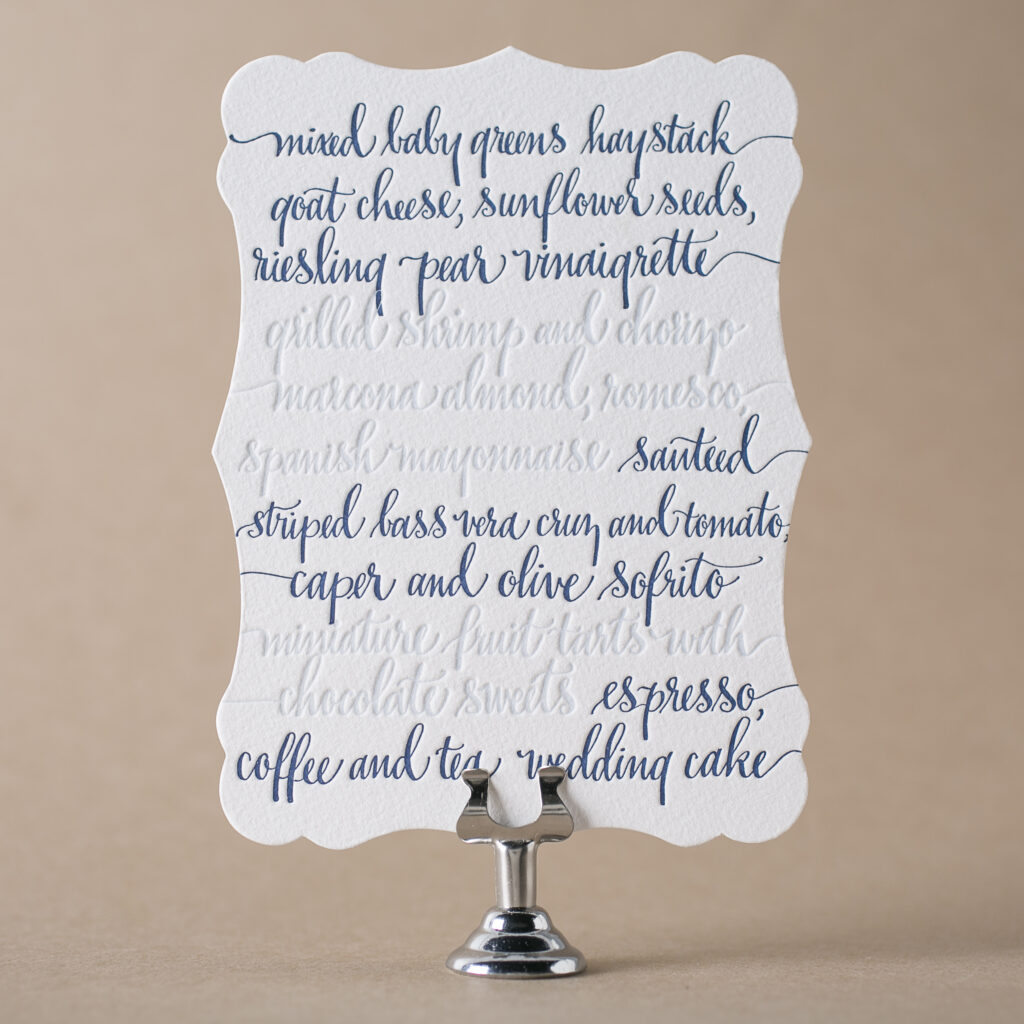 mixed baby greens haystack
goat cheese, sunflower seeds,
riesling pear vinaigrette
grilled shrimp and chorizo
marcona almond, romesco,
spanish mayonnaise sauteed
striped bass vera cruz and tomato,
caper and olive sofrito
miniature fruit tarts with
chocolate sweets espresso,
coffee and tea wedding cake